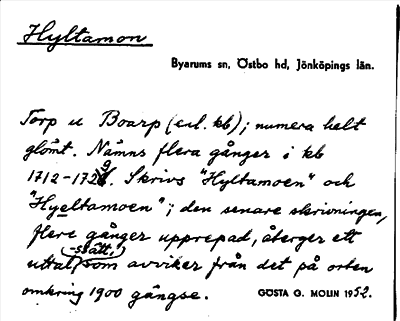 Hyltamon
Byarums sn, Östbo hd, Jönköpings län.
Torp u Boarp (enl. kb); numera helt
glömt. Nämns flera gånger i kb
1712-1729. Skrivs "Hyltamoen" och
"Hyeltamoen"; den senare skrivningen,
flere gånger upprepad, återger ett
-sätt,
uttal som avviker från det på orten
omkring 1900 gängse. GÖSTA G. MOLIN 1952.